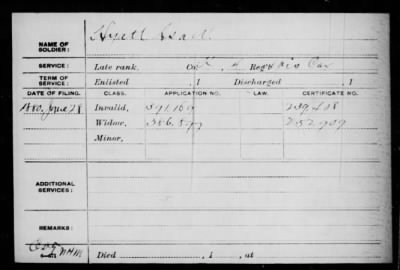 NAME OF SOLDIER: Hyatt Isaac
SERVICE: Late rank, Co. 4 Reg't Cav
TERM OF SERVICE: Enlisted , 1 Discharged , 1
DATE OF FILING. CLASS. APPLICATION NO. LAW. CERTIFICATE NO.
1880, June 28 Invalid,
Widow, 252909
Minor,
ADDITIONAL SERVICES:
REMARKS:
Died , 1 , at